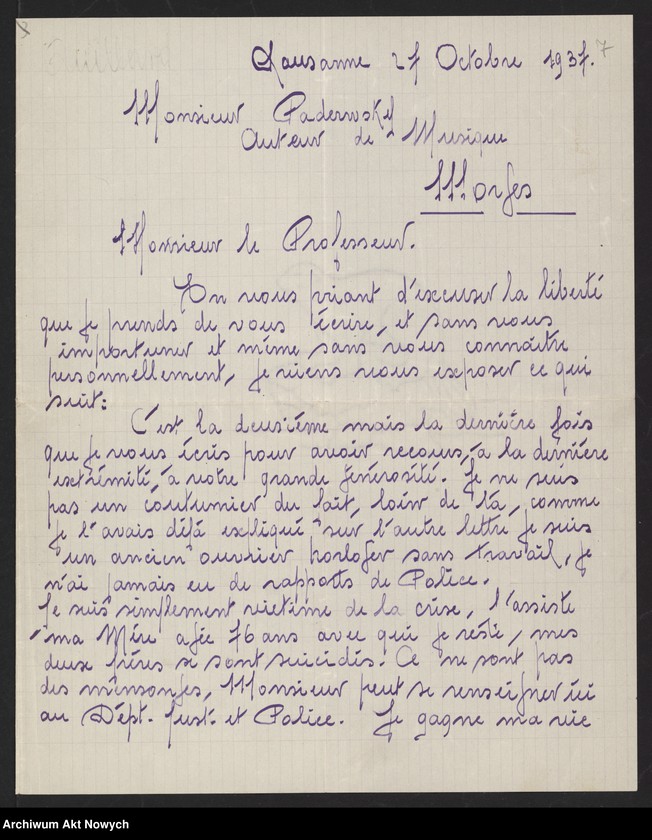 7
Lausanne 27 Octobre 1937.
Monsieur Paderwsky
Auteur de Musique
Morges
Monsieur le Professeur.
En vous priant d'excuser la liberté
que je prends de vous écrire, et sans vous
importuner et même sans vous connaître
personnellement, je viens vous exposer ce qui
suit:
C'est la deuxième mais la dernière fois
que je vous écris pour avoir recours, à la dernière
extrémité, à votre grande générosité. Je ne suis
pas un coutumier du fait, loin de là, comme
je l'avais déjà expliqué sur l'autre lettre je suis
un ancien ouvrier horloger sans travail, je
n'ai jamais eu de rapports de Police.
Je suis simplement victime de la crise, j'assiste
ma Mère agée 76 ans avec qui je reste, mes
deux frères se sont suicidés. Ce ne sont pas
des mensonges, Monsieur peut se renseigner ici
au Dépt. Just. et Police. Je gagne ma vie
Archiwum Akt Nowych